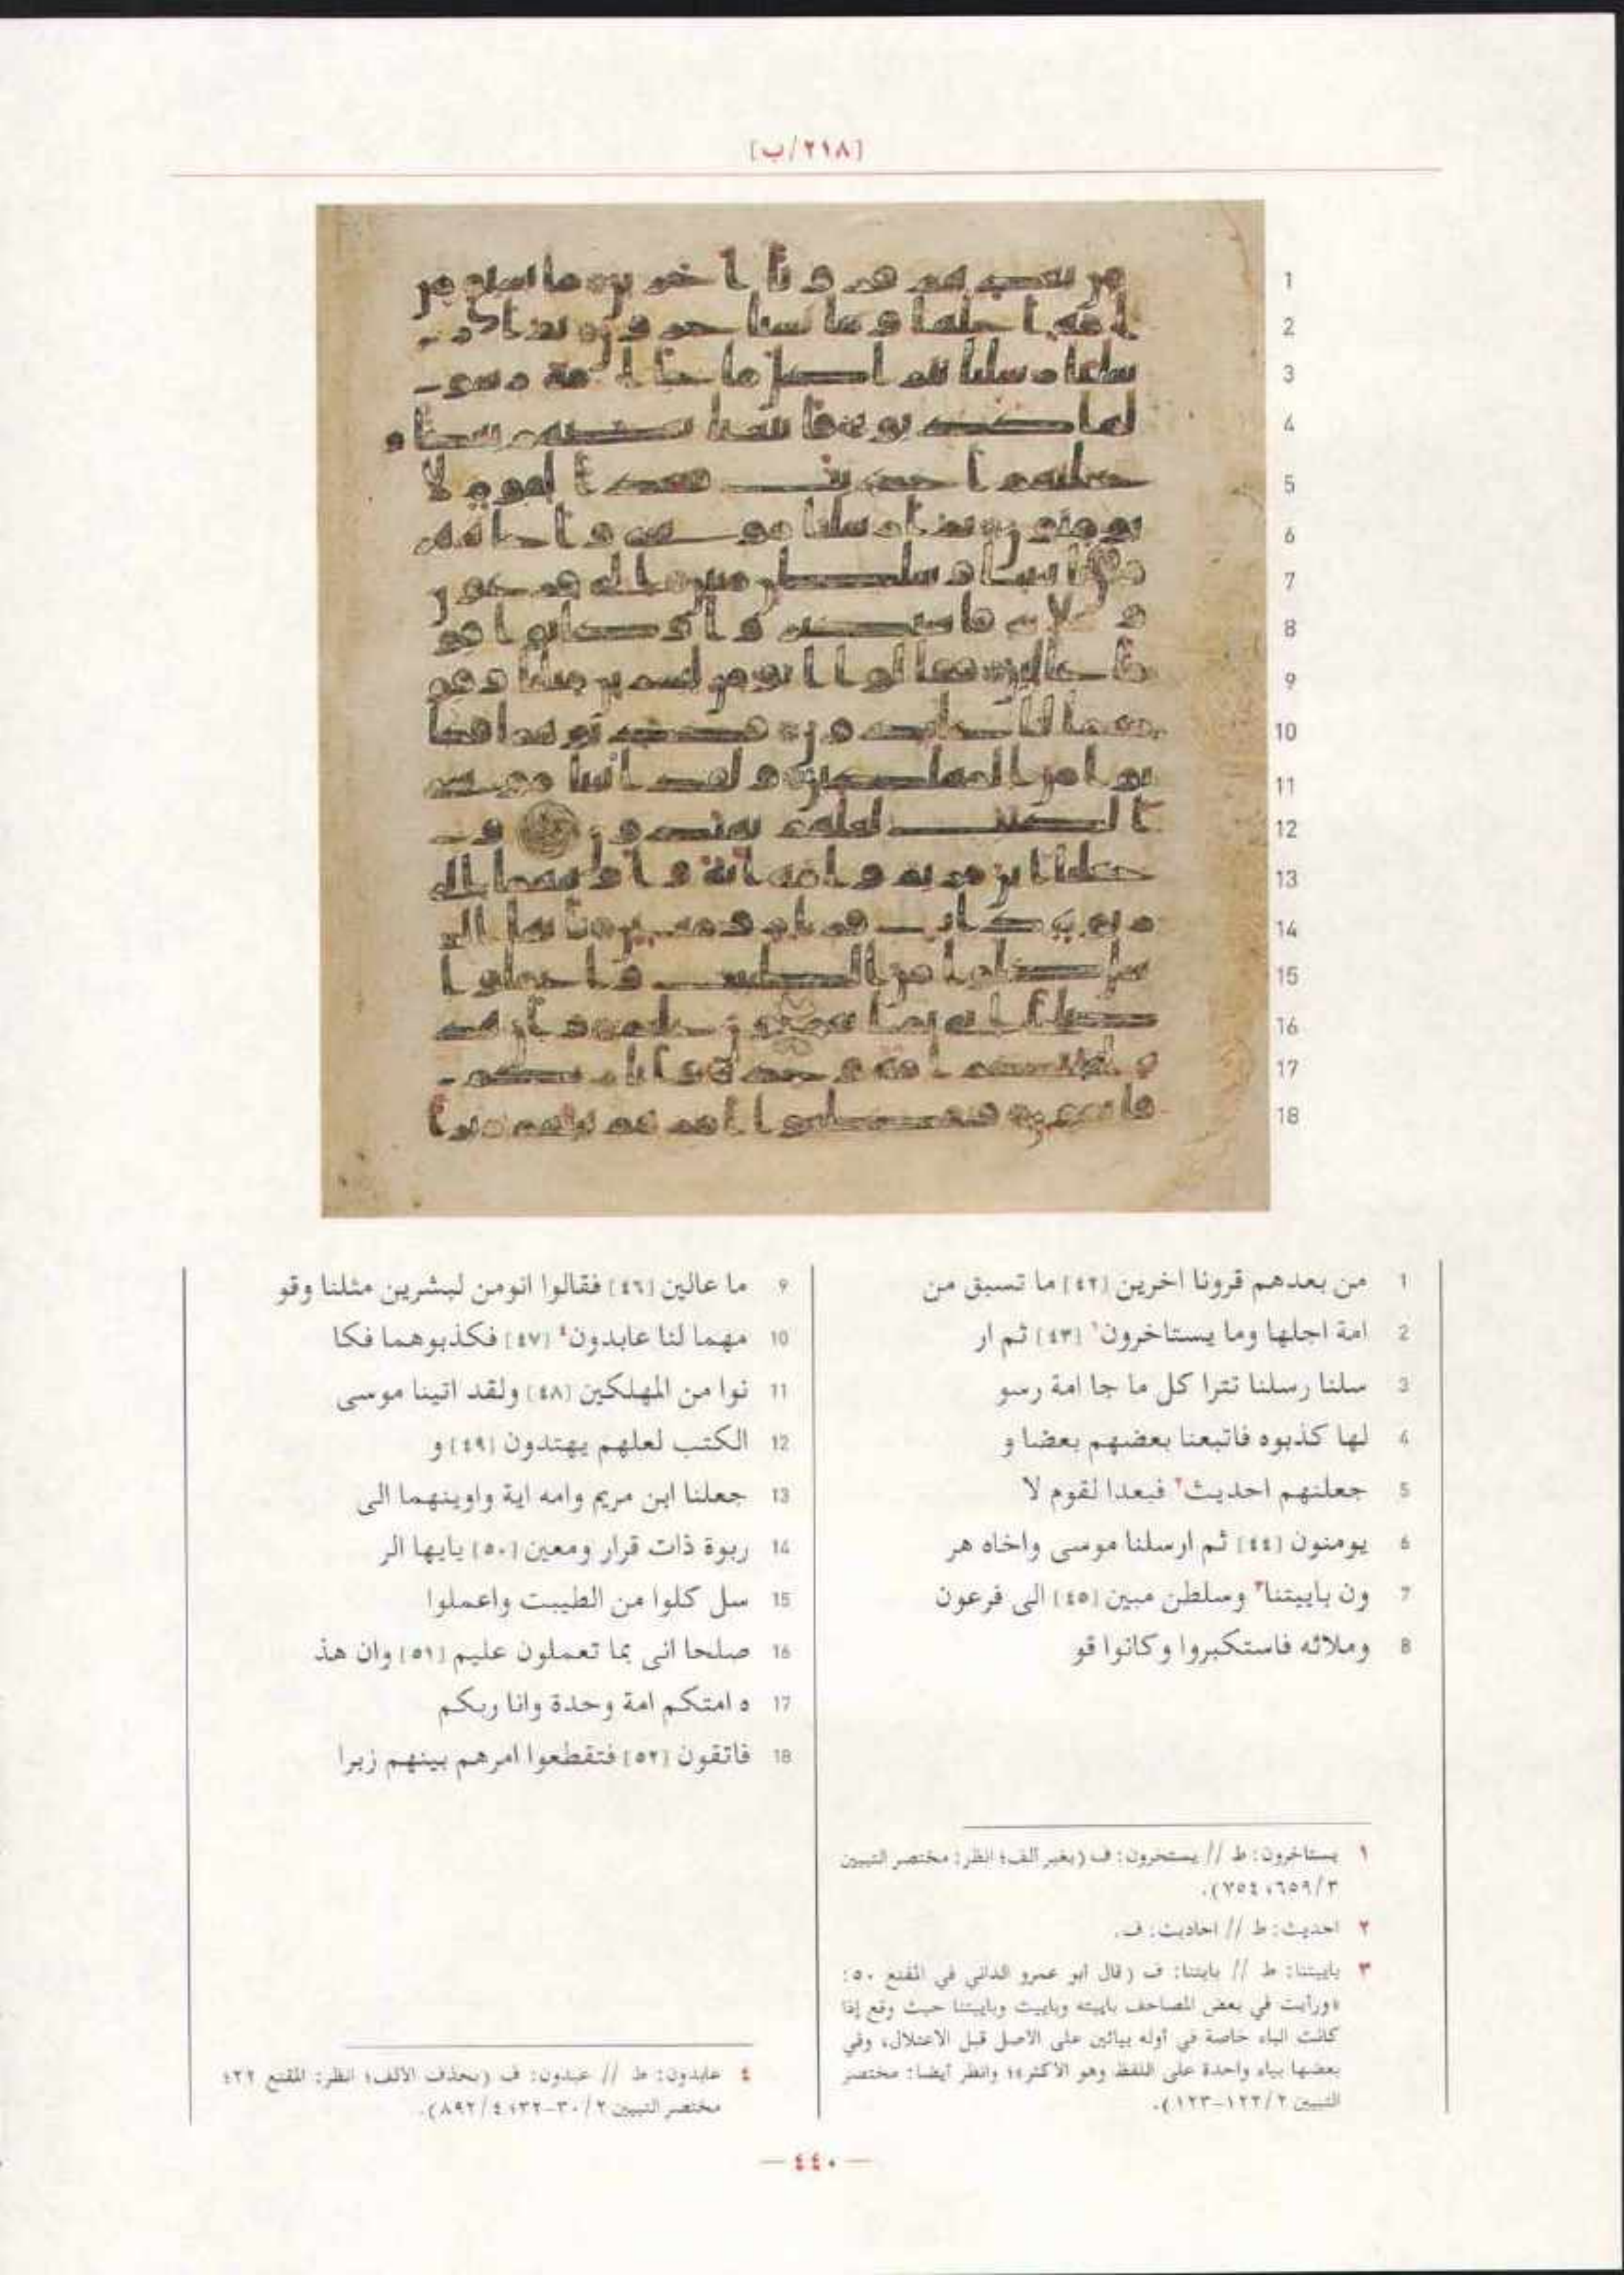 [٢١٨/ب]
1 من بعدهم قرونا اخرين [٤٢] ما تسبق من
2 امة اجلها وما يستاخرون١ [٤٣] ثم ار
3 سلنا رسلنا تترا كل ما جا امة رسو
4 لها كذبوه فاتبعنا بعضهم بعضا و
5 جعلنهم احديث٢ فبعدا لقوم لا
6 يومنون [٤٤] ثم ارسلنا موسى واخاه هر
7 ون باييتنا٣ وسلطن مبين [٤٥] الى فرعون
8 وملائه فاستكبروا وكانوا قو
9 ما عالين [٤٦] فقالوا انومن لبشرين مثلنا وقو
10 مهما لنا عابدون٤ [٤٧] فكذبوهما فكا
11 نوا من المهلكين [٤٨] ولقد اتينا موسى
12 الكتب لعلهم يهتدون [٤٩] و
13 جعلنا ابن مريم وامه اية واوينهما الى
14 ربوة ذات قرار ومعين [٥٠] يايها الر
15 سل كلوا من الطيبت واعملوا
16 صلحا انى بما تعملون عليم [٥١] وان هذ
17 ه امتكم امة وحدة وانا ربكم
18 فاتقون [٥٢] فتقطعوا امرهم بينهم زبرا
١ يستاخرون: ط // يستخرون: ف (بغير الف؛ انظر: مختصر التبيين
٣/٦٥٩، ٧٥٤).
٢ احديث: ط // احاديث: ف.
٣ باييتنا: ط // بايتنا: ف (قال أبو عمرو الداني في المقنع ٥٠:
«ورأيت في بعض المصاحف باييته وباييت وباييتنا حيث وقع إذا
كانت الباء خاصة في أوله بيائين على الاصل قبل الاعتلال، وفي
بعضها بياء واحدة على اللفظ وهو الاكثر»؛ وانظر أيضا: مختصر
التبيين ٢/١٢٢-١٢٣).
٤ عابدون: ط // عبدون: ف (بحذف الالف؛ انظر: المقنع ٢٢؛
مختصر التبيين ٢/٣٠-٣٢؛ ٤/٨٩٢).
— ٤٤٠ —